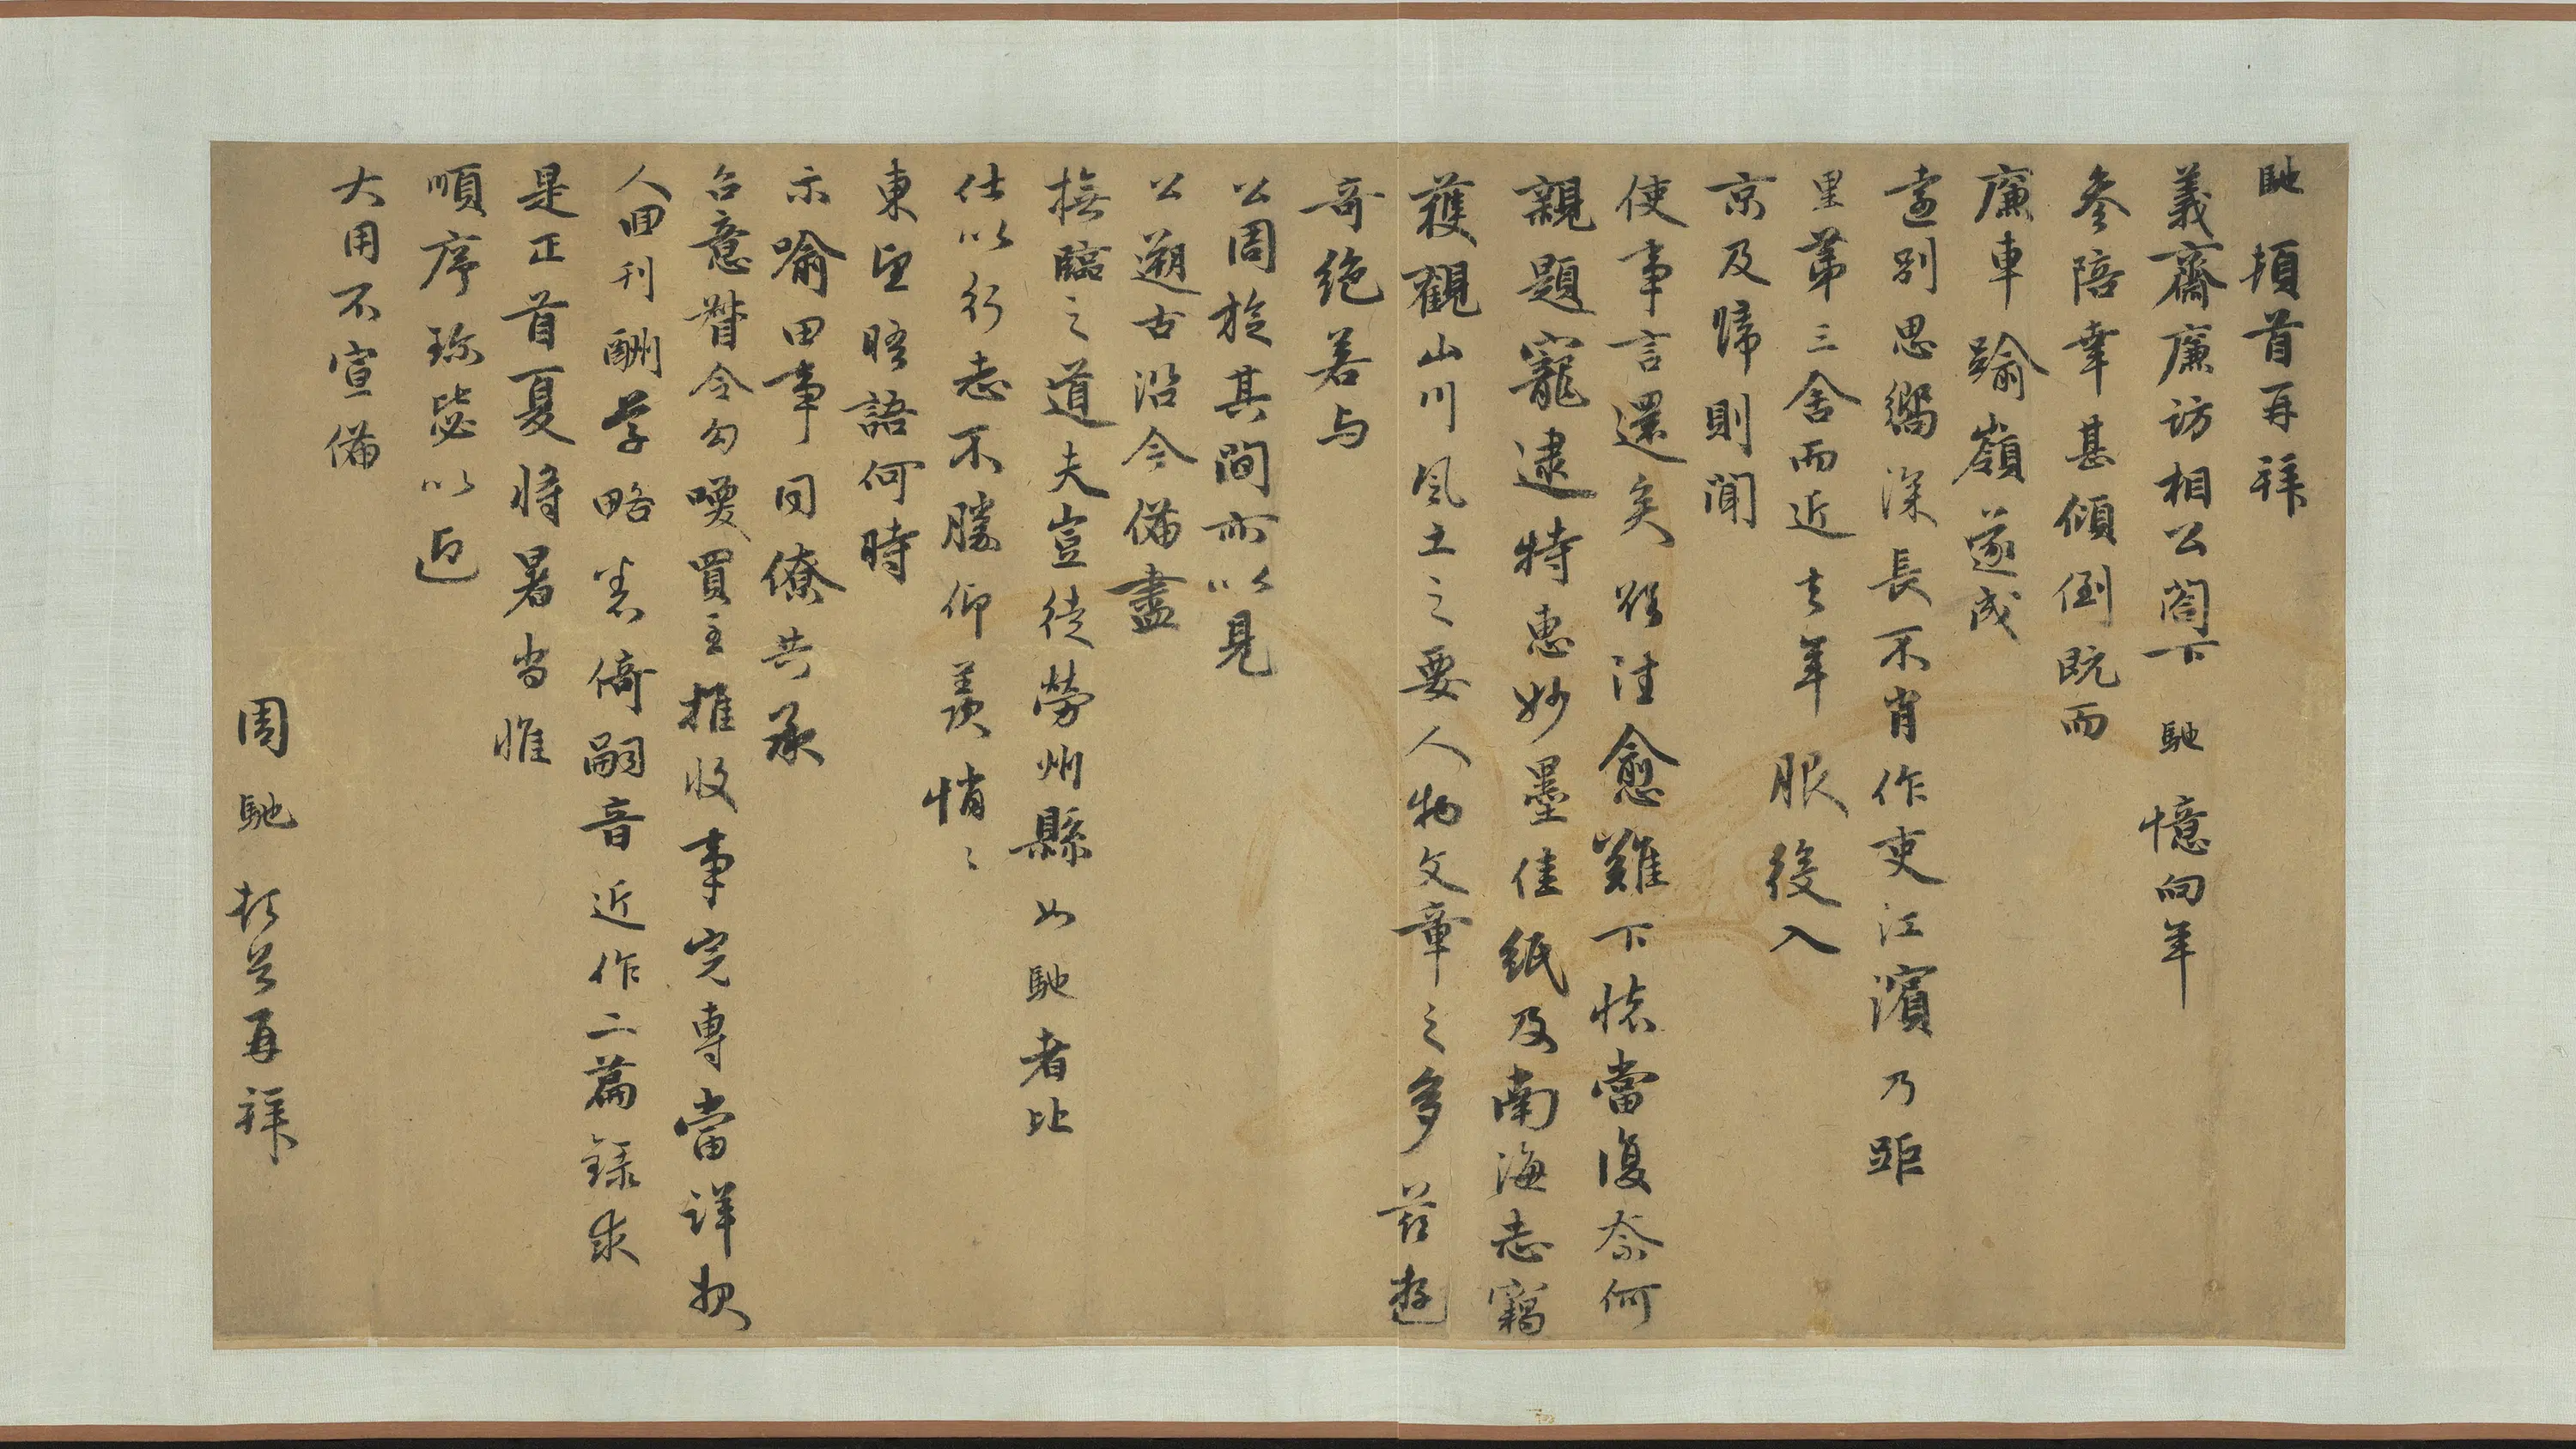 馳頓首再拜
義齋廉訪相公閣下馳憶向年
參陪幸甚傾倒既而
廉車踰嶺遂成
遠別思嚮深長不肖作吏江濱乃距
里第三舍而近去年服後入
京及歸則聞
使事言還矣欲往愈難下懷當復奈何
親題寵逮特惠妙墨佳紙及南海志竊
獲觀山川風土之要人物文章之多茲遊
奇絶若与
公周旋其間所以見
公遡古沿今備盡
撫臨之道夫豈徒勞州縣如馳者比
仕以行志不勝仰羨悄〻
東望晤語何時
示喻田事同僚共承
台意督令勾喚買主推收事完專當詳報
人回刊酬草略恙倚嗣音近作二篇録求
是正首夏將暑尚惟
順序珍毖以迓
大用不宣備
周馳頓首再拜